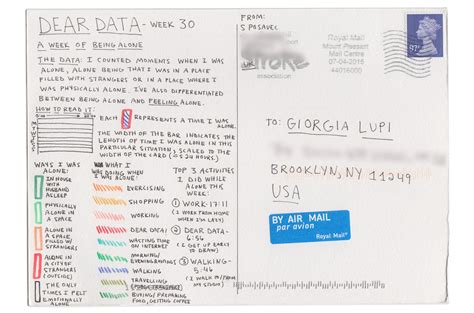 DEAR DATA - WEEK 30
A WEEK OF BEING ALONE
THE DATA: I COUNTED MOMENTS WHEN I WAS
ALONE, ALONE BEING THAT I WAS IN A PLACE
FILLED WITH STRANGERS OR IN A PLACE WHERE I
WAS PHYSICALLY ALONE. I'VE ALSO DIFFERENTIATED
BETWEEN BEING ALONE AND FEELING ALONE.
HOW TO READ IT:
EACH REPRESENTS A TIME I WAS
ALONE.
THE WIDTH OF THE BAR INDICATES THE
LENGTH OF TIME I WAS ALONE IN THIS
PARTICULAR SITUATION, SCALED TO THE
WIDTH OF THE CARD
WAYS I WAS
ALONE:
IN HOUSE
WITH
HUSBAND
ASLEEP
PHYSICALLY
ALONE IN A
SPACE
ALONE IN
A SPACE
FILLED W/
STRANGERS
ALONE IN
A CITY OF
STRANGERS
(OUTSIDE)
THE ONLY
TIMES I FELT
EMOTIONALLY
ALONE
WHAT I
WAS DOING WHEN
I WAS ALONE:
EXERCISING
SHOPPING
WORKING
DEAR DATA!
WASTING TIME
ON INTERNET
MORNING/
EVENING ROUTINES
WALKING
TRAVELLING
BUYING/PREPARING
FOOD, GETTING COFFEE
TOP 3 ACTIVITIES
I DID WHILE
ALONE THIS
WEEK:
① WORK - 17:11
(I WORK FROM HOME
WHEN I'M LAZY)
② DEAR DATA -
6:56
(I GET UP EARLY
TO DRAW)
③ WALKING -
5:46
(I WALK TO/FROM
MY STUDIO)
FROM:
S POSAVEC
UK
association
Royal Mail
Mount Pleasant
Mail Centre
07-04-2015
44916000
TO: GIORGIA LUPI
BROOKLYN, NY 11249
USA
BY AIR MAIL
par avion
Royal Mail